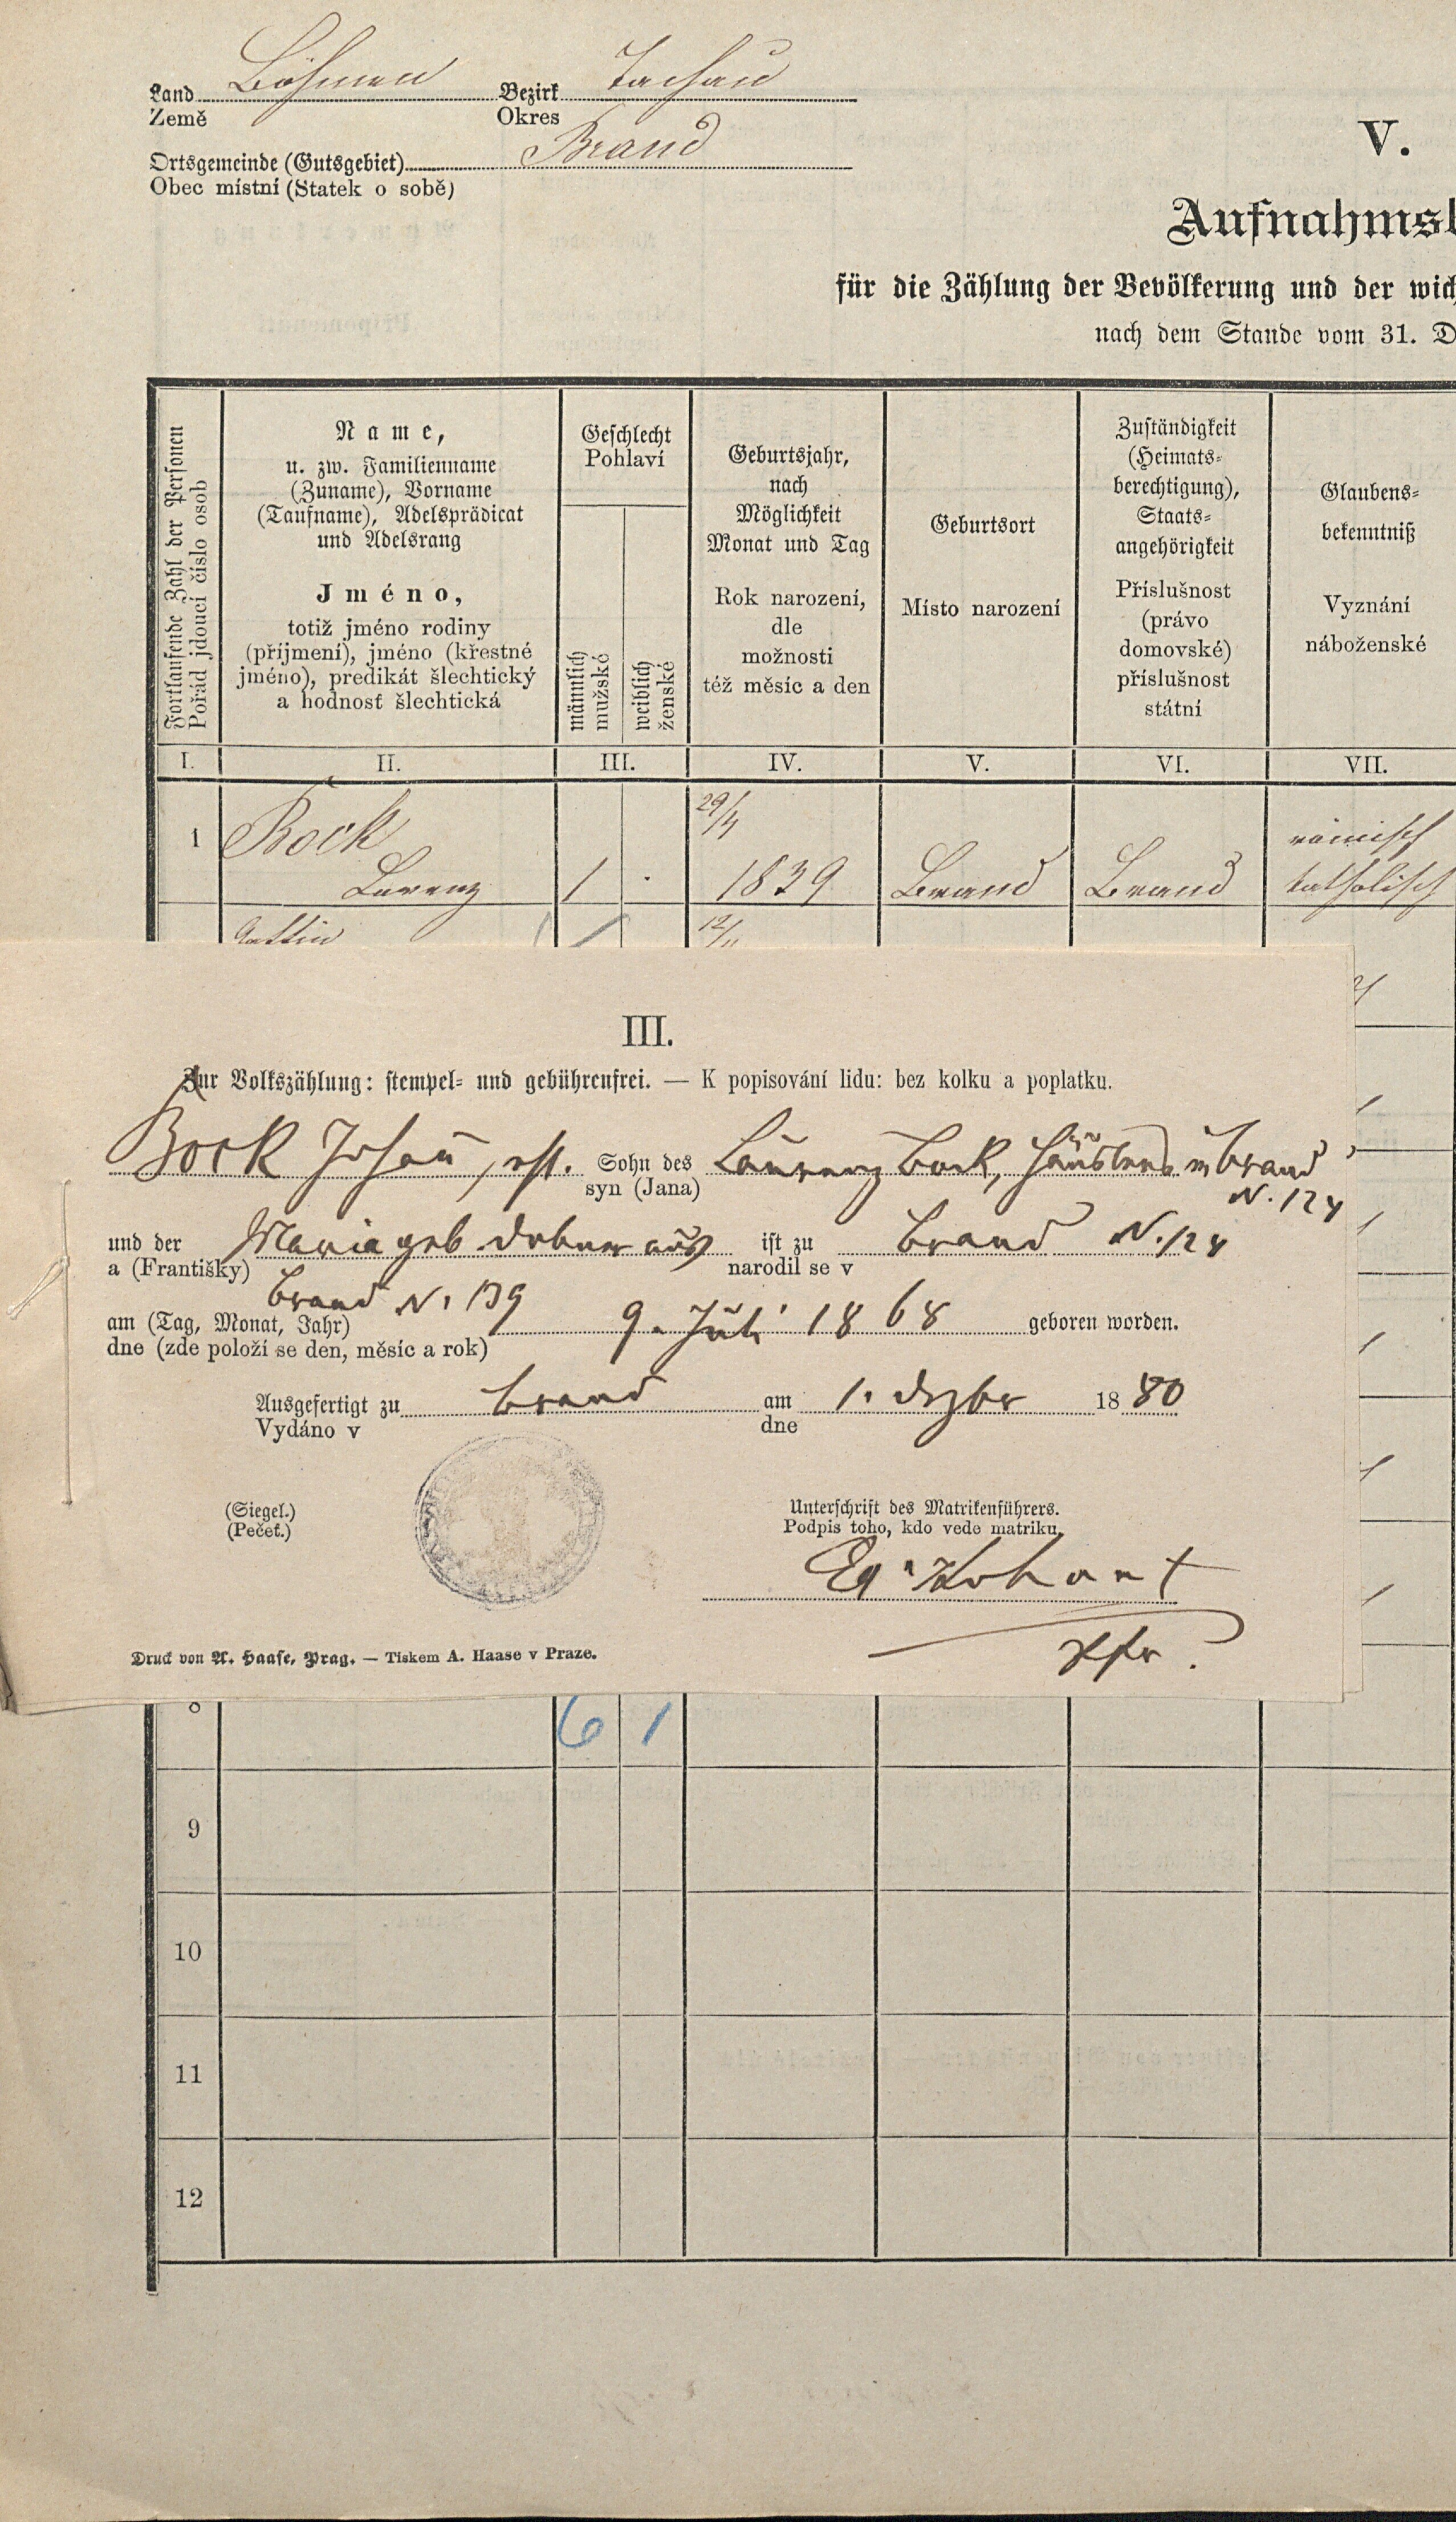 Land Böhmen Bezirk Tachau
Země Okres
Ortsgemeinde (Gutsgebiet) Brand
Obec místní (Statek o sobě)
V.
Aufnahmsb
für die Zählung der Bevölkerung und der wich
nach dem Stande vom 31. D
Fortlaufende Zahl der Personen
Pořád jdoucí číslo osob
Name,
u. zw. Familienname
(Zuname), Vorname
(Taufname), Adelsprädicat
und Adelsrang
Jméno,
totiž jméno rodiny
(příjmení), jméno (křestné
jméno), predikát šlechtický
a hodnost šlechtická
Geschlecht
Pohlaví
männlich
mužské
weiblich
ženské
Geburtsjahr,
nach
Möglichkeit
Monat und Tag
Rok narození,
dle
možnosti
též měsíc a den
Geburtsort
Místo narození
Zuständigkeit
(Heimats-
berechtigung),
Staats-
angehörigkeit
Příslušnost
(právo
domovské)
příslušnost
státní
Glaubens-
bekenntniß
Vyznání
náboženské
I. II. III. IV. V. VI. VII.
1 Bock 29/4 römisch
Lorenz 1 . 1839 Brand Brand katholisch
Gattin 1 12/11
III.
Zur Volkszählung: stempel- und gebührenfrei. — K popisování lidu: bez kolku a poplatku.
Bock Johann, Sohn des Laurenz Bock, Häuslers in Brand
syn (Jana) N. 124
und der Maria geb. Dobner aus ist zu Brand N. 124
a (Františky) narodil se v
Brand N. 139
am (Tag, Monat, Jahr) 9. Juli 1868 geboren worden.
dne (zde položí se den, měsíc a rok)
Ausgefertigt zu Brand am 1. Dezbr 1880
Vydáno v dne
(Siegel.)
(Pečeť.)
Unterschrift des Matrikenführers.
Podpis toho, kdo vede matriku.
Kohant
Pfr.
Druck von A. Haase, Prag. — Tiskem A. Haase v Praze.
8 6 1
9
10
11
12